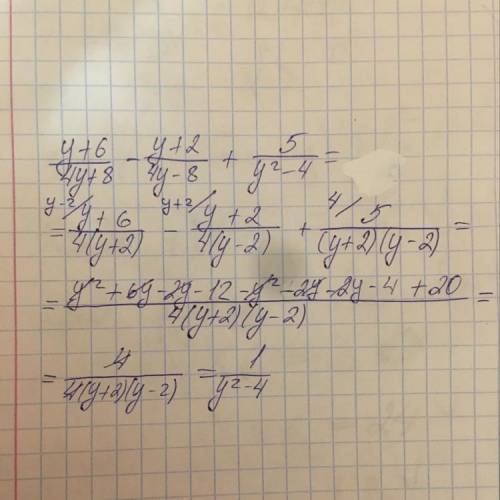 y+6/4y+8 - y+2/4y-8 + 5/y²-4 =
= y-2/ y+6/4(y+2) - y+2/ y+2/4(y-2) + 4/ 5/(y+2)(y-2) =
= y²+6y-2y-12-y²-2y-2y-4+20/4(y+2)(y-2) =
= 4/4(y+2)(y-2) = 1/y²-4